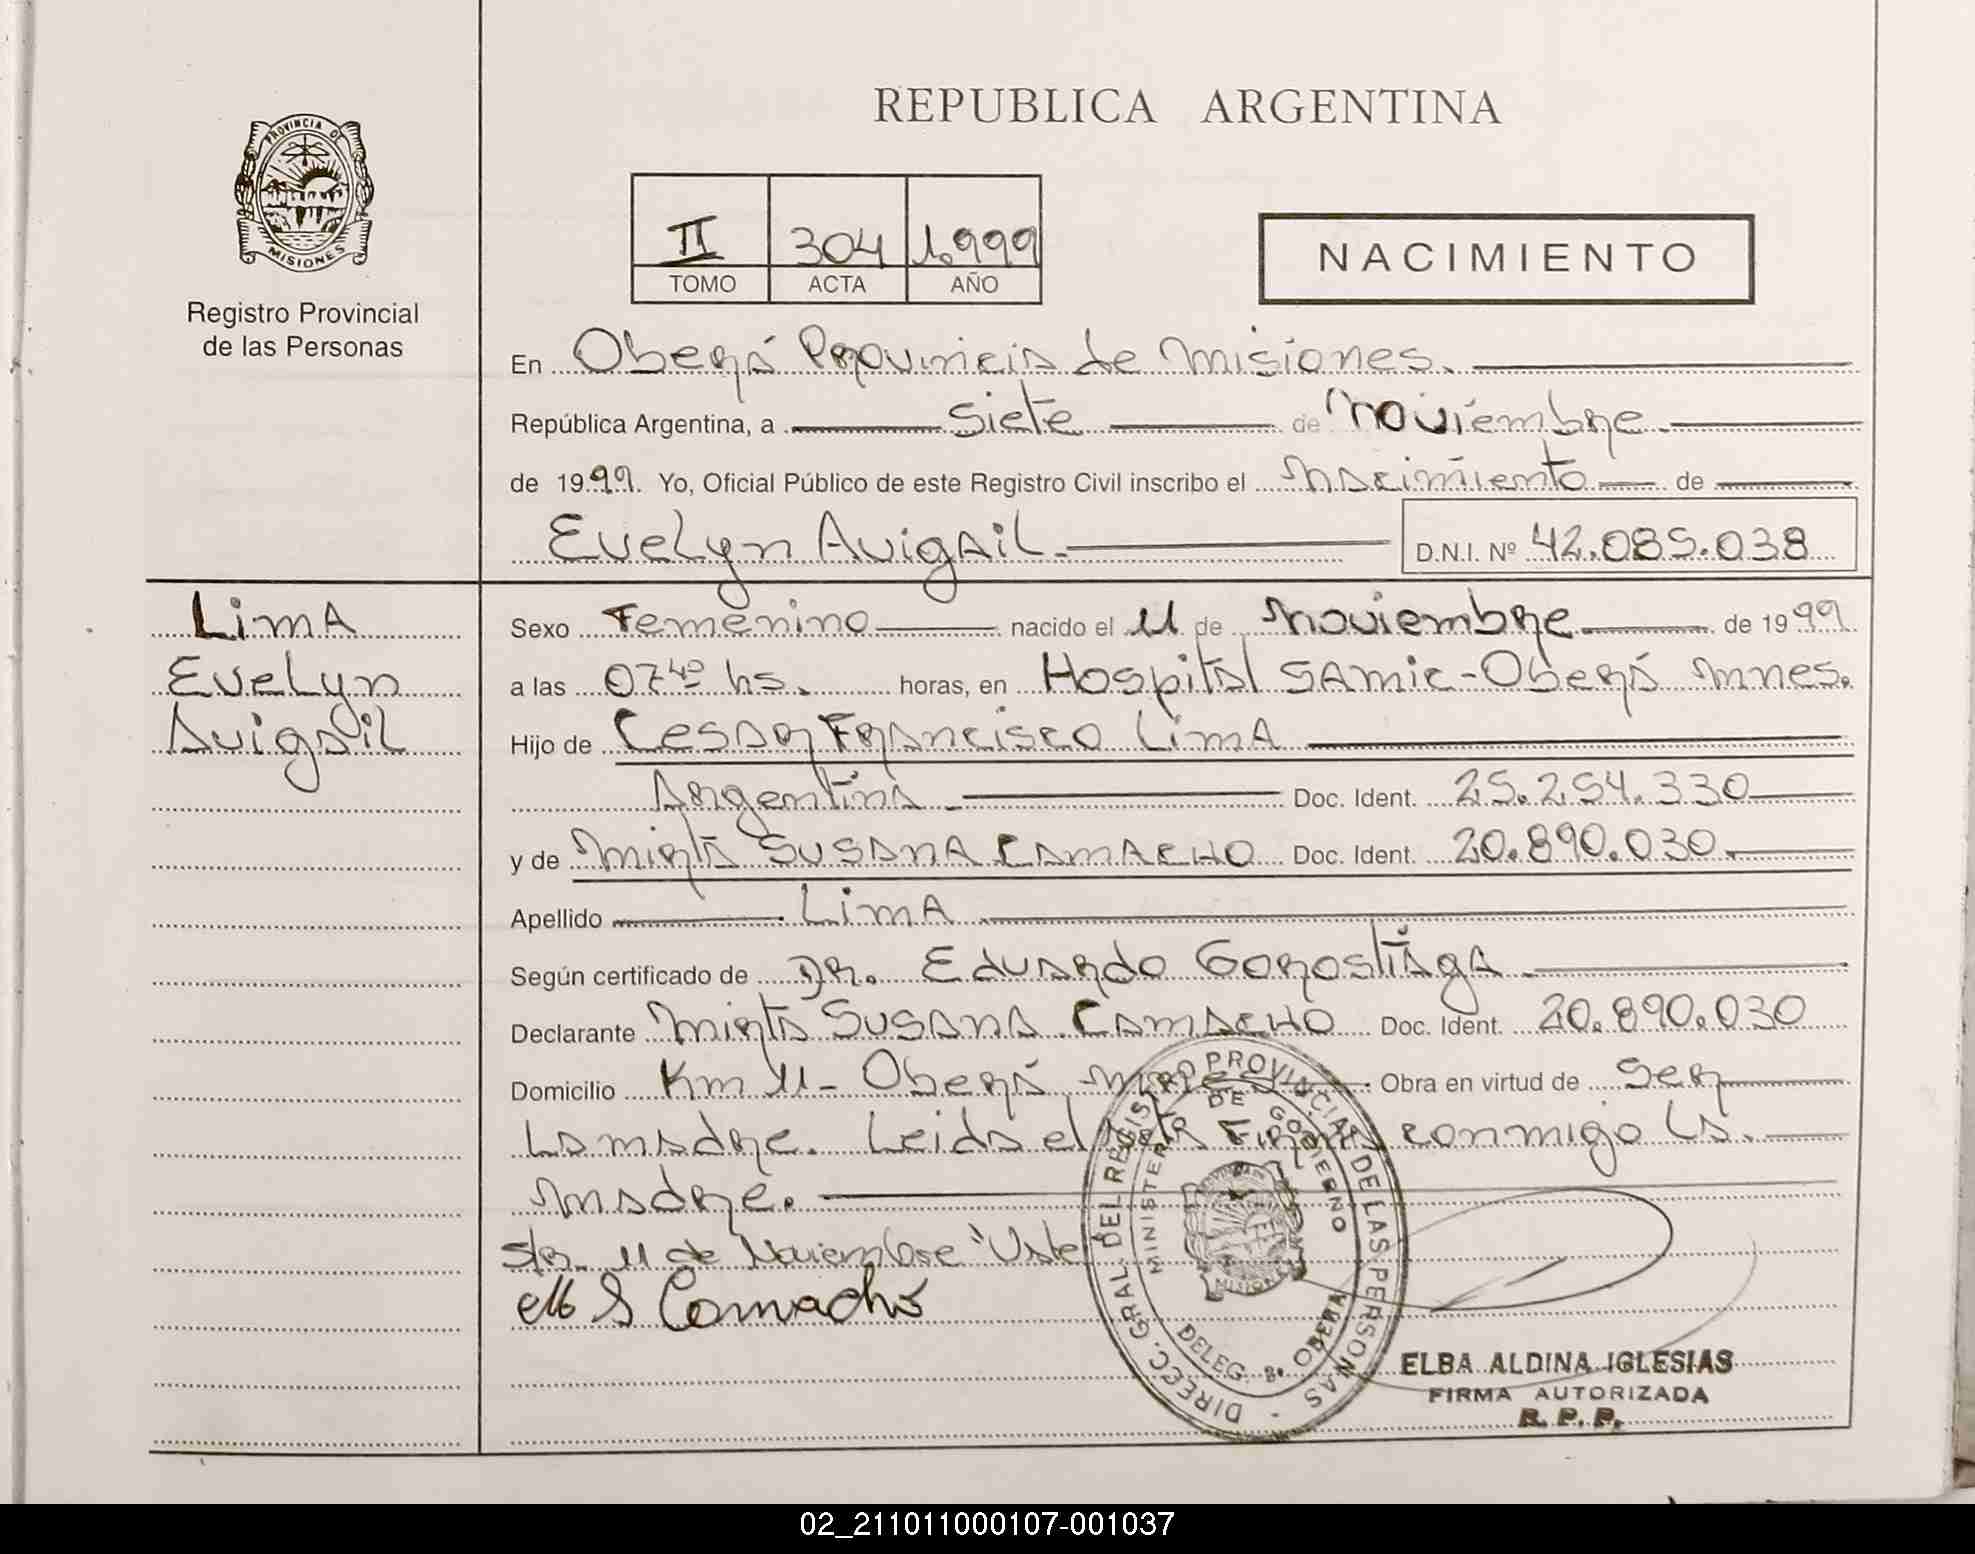 REPUBLICA ARGENTINA
PROVINCIA DE
MISIONES
Registro Provincial
de las Personas
II 304 1.999
TOMO ACTA AÑO
NACIMIENTO
En Oberá Provincia de Misiones.
República Argentina, a siete de Noviembre
de 1999. Yo, Oficial Público de este Registro Civil inscribo el Nacimiento de
Evelyn Avigail D.N.I. Nº 42.085.038
Lima
Evelyn
Avigail
Sexo Femenino nacido el 11 de Noviembre de 1999
a las 07 40 hs. horas, en Hospital SAmic-Oberá mnes.
Hijo de Cesar Francisco Lima
Argentina Doc. Ident. 25.254.330
y de Mirta Susana Camacho Doc. Ident. 20.890.030
Apellido Lima
Según certificado de DR. Eduardo Gorostiaga
Declarante Mirta Susana Camacho Doc. Ident. 20.890.030
Domicilio Km 11- Oberá mnes Obra en virtud de ser
La madre. Leida el acta Firma conmigo La
madre.
S/R. 11 de Noviembre "Vale
M S Camacho
DIRECC. GRAL. DEL REGISTRO PROVINCIAL DE LAS PERSONAS
MINISTERIO DE GOBIERNO
MISIONES
DELEG. 8ª OBERA
ELBA ALDINA IGLESIAS
FIRMA AUTORIZADA
R. P. P.
02_211011000107-001037